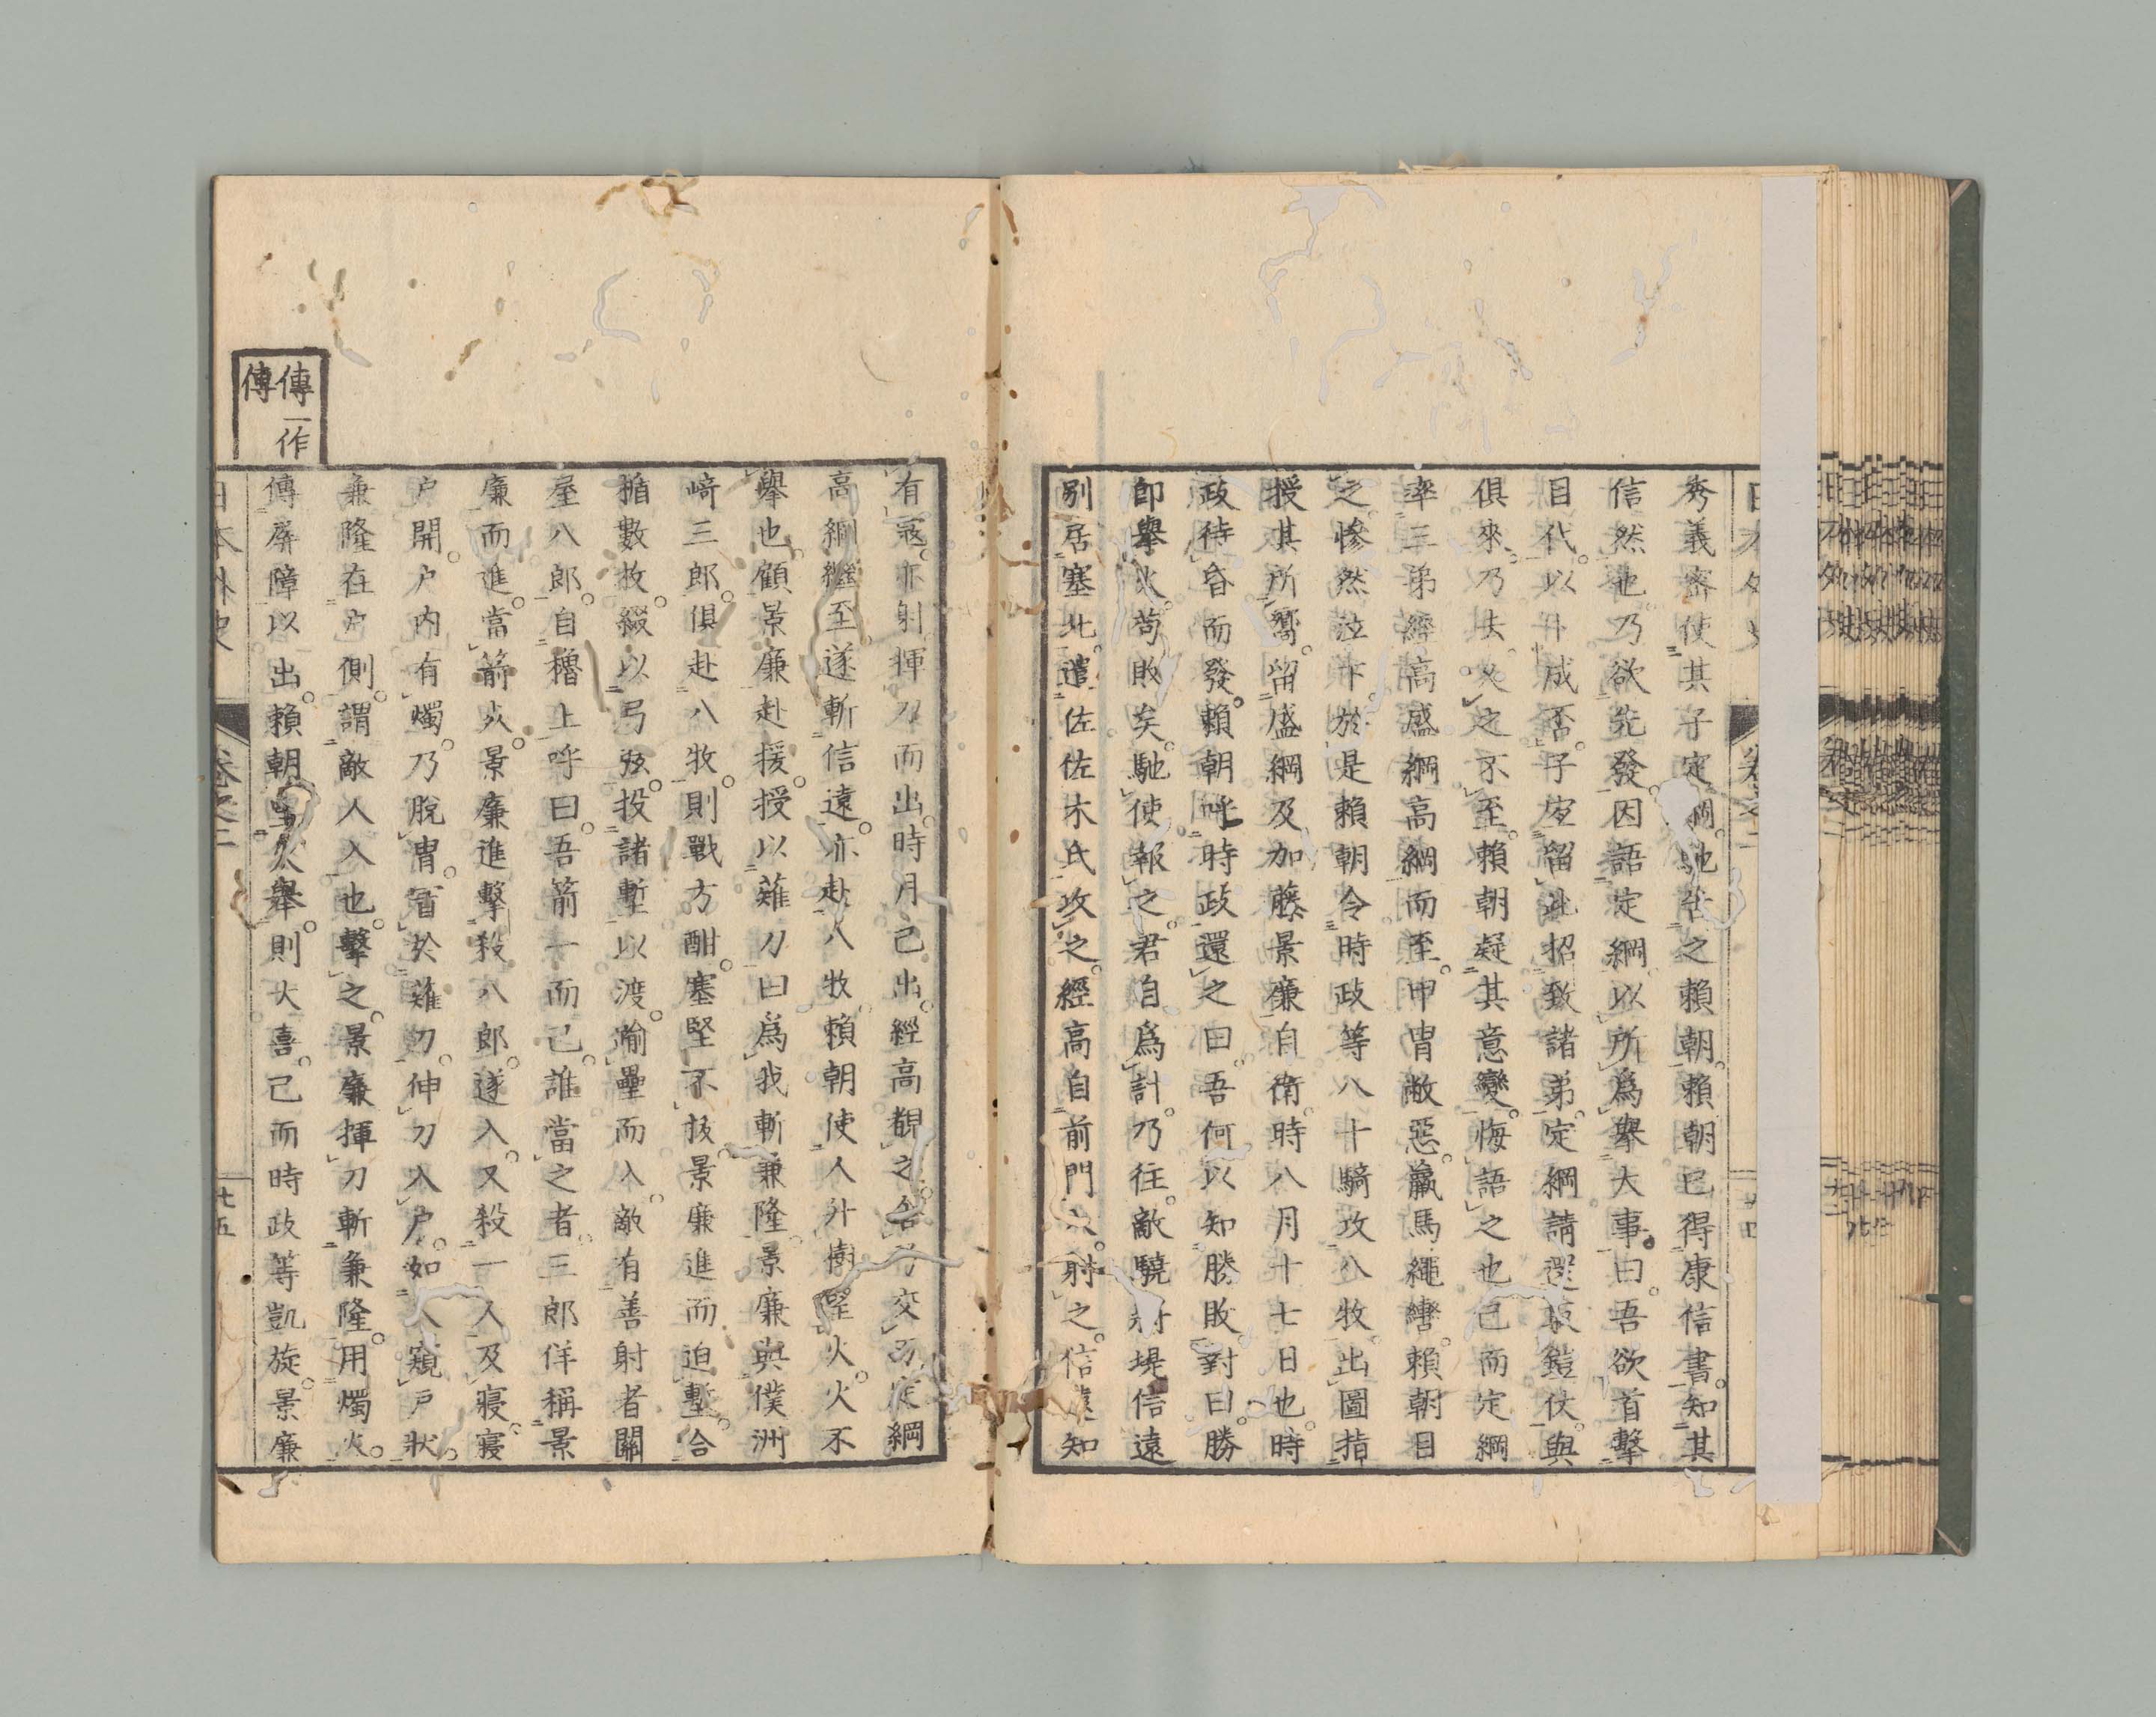 秀義密使其子定綱馳告之賴朝。賴朝已得康信書。知其
信然也。乃欲先發。因語定綱以所爲舉大事。曰。吾欲首擊
目代。以卜成否。子宜留此招致諸弟。定綱請還取鎧仗。與
俱來。乃去。久之不至。賴朝疑其意變。悔語之也。已而定綱
率三弟經高盛綱高綱而至。甲冑敝惡。羸馬繩轡。賴朝目
之。慘然泣下。於是賴朝令時政等八十騎攻八牧。出圖指
授其所嚮。留盛綱及加藤景廉自衛。時八月十七日也。時
政待昏而發。賴朝呼時政還之曰。吾何以知勝敗。對曰。勝
卽舉火。苟敗矣。馳使報之。君自爲計。乃往。敵驍將堤信遠
別居塞北。遣佐佐木氏攻之。經高自前門入。射之。信遠知
有寇。亦射。揮刀而出。時月已出。經高覩之。舍弓交刀。定綱
高綱繼至。遂斬信遠。亦赴八牧。賴朝使人升樹望火。火不
舉也。顧景廉赴援。授以薙刀曰。爲我斬兼隆。景廉與僕洲
崎三郎。俱赴八牧。則戰方酣。塞堅不拔。景廉進而迫塹。合
楯數枚。綴以弓弦。投諸塹以渡。踰壘而入。敵有善射者關
屋八郎。自櫓上呼曰。吾箭一而已。誰當之者。三郎佯稱景
廉而進。當箭死。景廉進擊殺八郎。遂入。又殺一人及寢。寢
戶開。戶內有燭。乃脫冑。冒於薙刀。伸刀入戶。如人窺戶狀。
兼隆在戶側。謂敵人入也。擊之。景廉揮刀斬兼隆。用燭火。
傳屏障以出。賴朝望火舉。則大喜。已而時政等凱旋。景廉
傳一作
傳
日本外史
卷之二
廿五